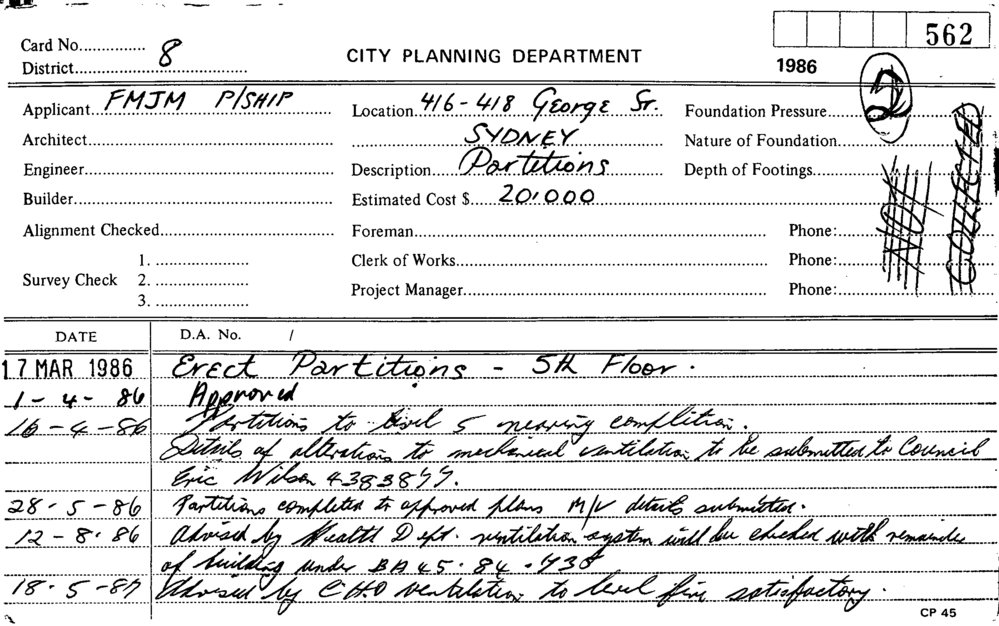 562
Card No............... 8
District
CITY PLANNING DEPARTMENT
1986
Applicant FMJM P/SHIP
Location 416-418 George St.
Foundation Pressure
Architect
SYDNEY
Nature of Foundation
Engineer
Description Partitions
Depth of Footings
Builder
Estimated Cost $ 20,000
Alignment Checked
Foreman
Phone:
Survey Check 1.
2.
3.
Clerk of Works
Phone:
Project Manager
Phone:
NOT
COLLECTED
DATE D.A. No. /
17 MAR 1986 Erect Partitions - 5th Floor.
1-4-86 Approved
16-4-86 Partitions to level 5 nearing completion.
Details of alterations to mechanical ventilation to be submitted to Council
Eric Wilson 4383877.
28-5-86 Partitions completed to approved plans M/V details submitted.
12-8-86 Advised by Health Dept. ventilation system will be checked with remainder
of building under BA 45.84.738
18-5-87 Advised by EHO ventilation to level five satisfactory.
CP 45